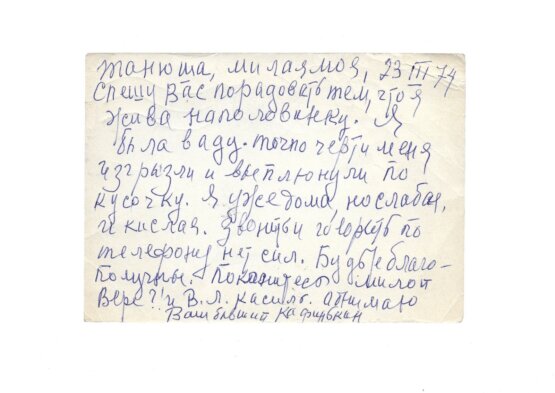 Танюша, милая моя, 23 III 74
Спешу вас порадовать тем, что я
жива наполовинку. Я
была в аду. точно черти меня
изгрызли и выплюнули по
кусочку. Я уже дома, но слабая,
и кислая. Звонить и говорить по
телефону нет сил. Будьте благо-
получны. милой
Вере?! и В.Л. обнимаю
Ваш бывший